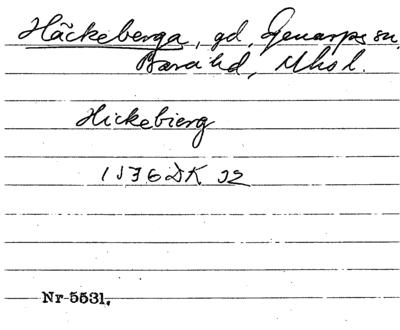 Häckeberga, gd, Genarps sn,
Bara hd, Mhsl.
Hickebierg
1536 DK 32
Nr 5531.